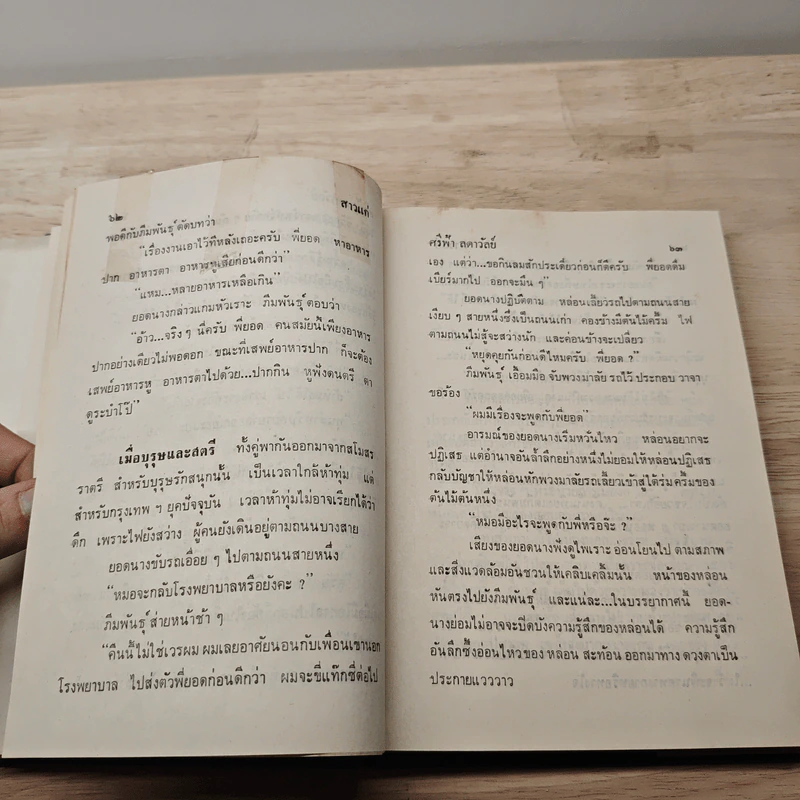 ๖๒ สาวแก่
พอดีกับภีมพันธุ์ ตัดบทว่า
“เรื่องงานเอาไว้ทีหลังเถอะครับ พี่ยอด หาอาหาร
ปาก อาหารตา อาหารหูเสียก่อนดีกว่า”
“แหม...หลายอาหารเหลือเกิน”
ยอดนางกล่าวแกมหัวเราะ ภีมพันธุ์ ตอบว่า
“อ้าว...จริง ๆ นี่ครับ พี่ยอด คนสมัยนี้เพียงอาหาร
ปากอย่างเดียวไม่พอดอก ขณะที่เสพย์อาหารปาก ก็จะต้อง
เสพย์อาหารหู อาหารตาไปด้วย...ปากกิน หูฟังดนตรี ตา
ดูระบำโป๊”
เมื่อบุรุษและสตรี ทั้งคู่พากันออกมาจากสโมสร
ราตรี สำหรับบุรุษรักสนุกนั้น เป็นเวลาใกล้ห้าทุ่ม แต่
สำหรับกรุงเทพ ฯ ยุคปัจจุบัน เวลาห้าทุ่มไม่อาจเรียกได้ว่า
ดึก เพราะไฟยังสว่าง ผู้คนยังเดินอยู่ตามถนนบางสาย
ยอดนางขับรถเอื่อย ๆ ไปตามถนนสายหนึ่ง
“หมอจะกลับโรงพยาบาลหรือยังคะ ?”
ภีมพันธุ์ ส่ายหน้าช้า ๆ
“คืนนี้ไม่ใช่เวรผม ผมเลยอาศัยนอนกับเพื่อนเขานอก
โรงพยาบาล ไปส่งตัวพี่ยอดก่อนดีกว่า ผมจะขี่แท๊กซี่ต่อไป
ศรีฟ้า ลดาวัลย์ ๖๓
เอง แต่ว่า...ขอกินลมสักประเดี๋ยวก่อนก็ดีครับ พี่ยอดดื่ม
เบียร์มากไป ออกจะมึน ๆ”
ยอดนางปฏิบัติตาม หล่อนเลี้ยวรถไปตามถนนสาย
เงียบ ๆ สายหนึ่งซึ่งเป็นถนนเก่า คลองข้างมีต้นไม้ครึ้ม ไฟ
ตามถนนไม่สู้จะสว่างนัก และค่อนข้างจะเปลี่ยว
“หยุดคุยกันก่อนดีไหมครับ พี่ยอด ?”
ภีมพันธุ์ เอื้อมมือ จับพวงมาลัย รถไว้ ประกอบ วาจา
ขอร้อง
“ผมมีเรื่องจะพูดกับพี่ยอด”
อารมณ์ของยอดนางเริ่มหวั่นไหว หล่อนอยากจะ
ปฏิเสธ แต่อำนาจอันล้ำลึกอย่างหนึ่งไม่ยอมให้หล่อนปฏิเสธ
กลับบัญชาให้หล่อนหักพวงมาลัยรถเลี้ยวเข้าสู่ใต้ร่มครึ้มของ
ต้นไม้ต้นหนึ่ง
“หมอมีอะไรจะพูดกับพี่หรือจ๊ะ ?”
เสียงของยอดนางฟังดูไพเราะ อ่อนโยนไป ตามสภาพ
และสิ่งแวดล้อมอันชวนให้เคลิบเคลิ้มนั้น หน้าของหล่อน
หันตรงไปยังภีมพันธุ์ และแน่ละ...ในบรรยากาศนี้ ยอด-
นางย่อมไม่อาจจะปิดบังความรู้สึกของหล่อนได้ ความรู้สึก
อันลึกซึ้งอ่อนไหวของ หล่อน สะท้อน ออกมาทาง ดวงตาเป็น
ประกายแวววาว